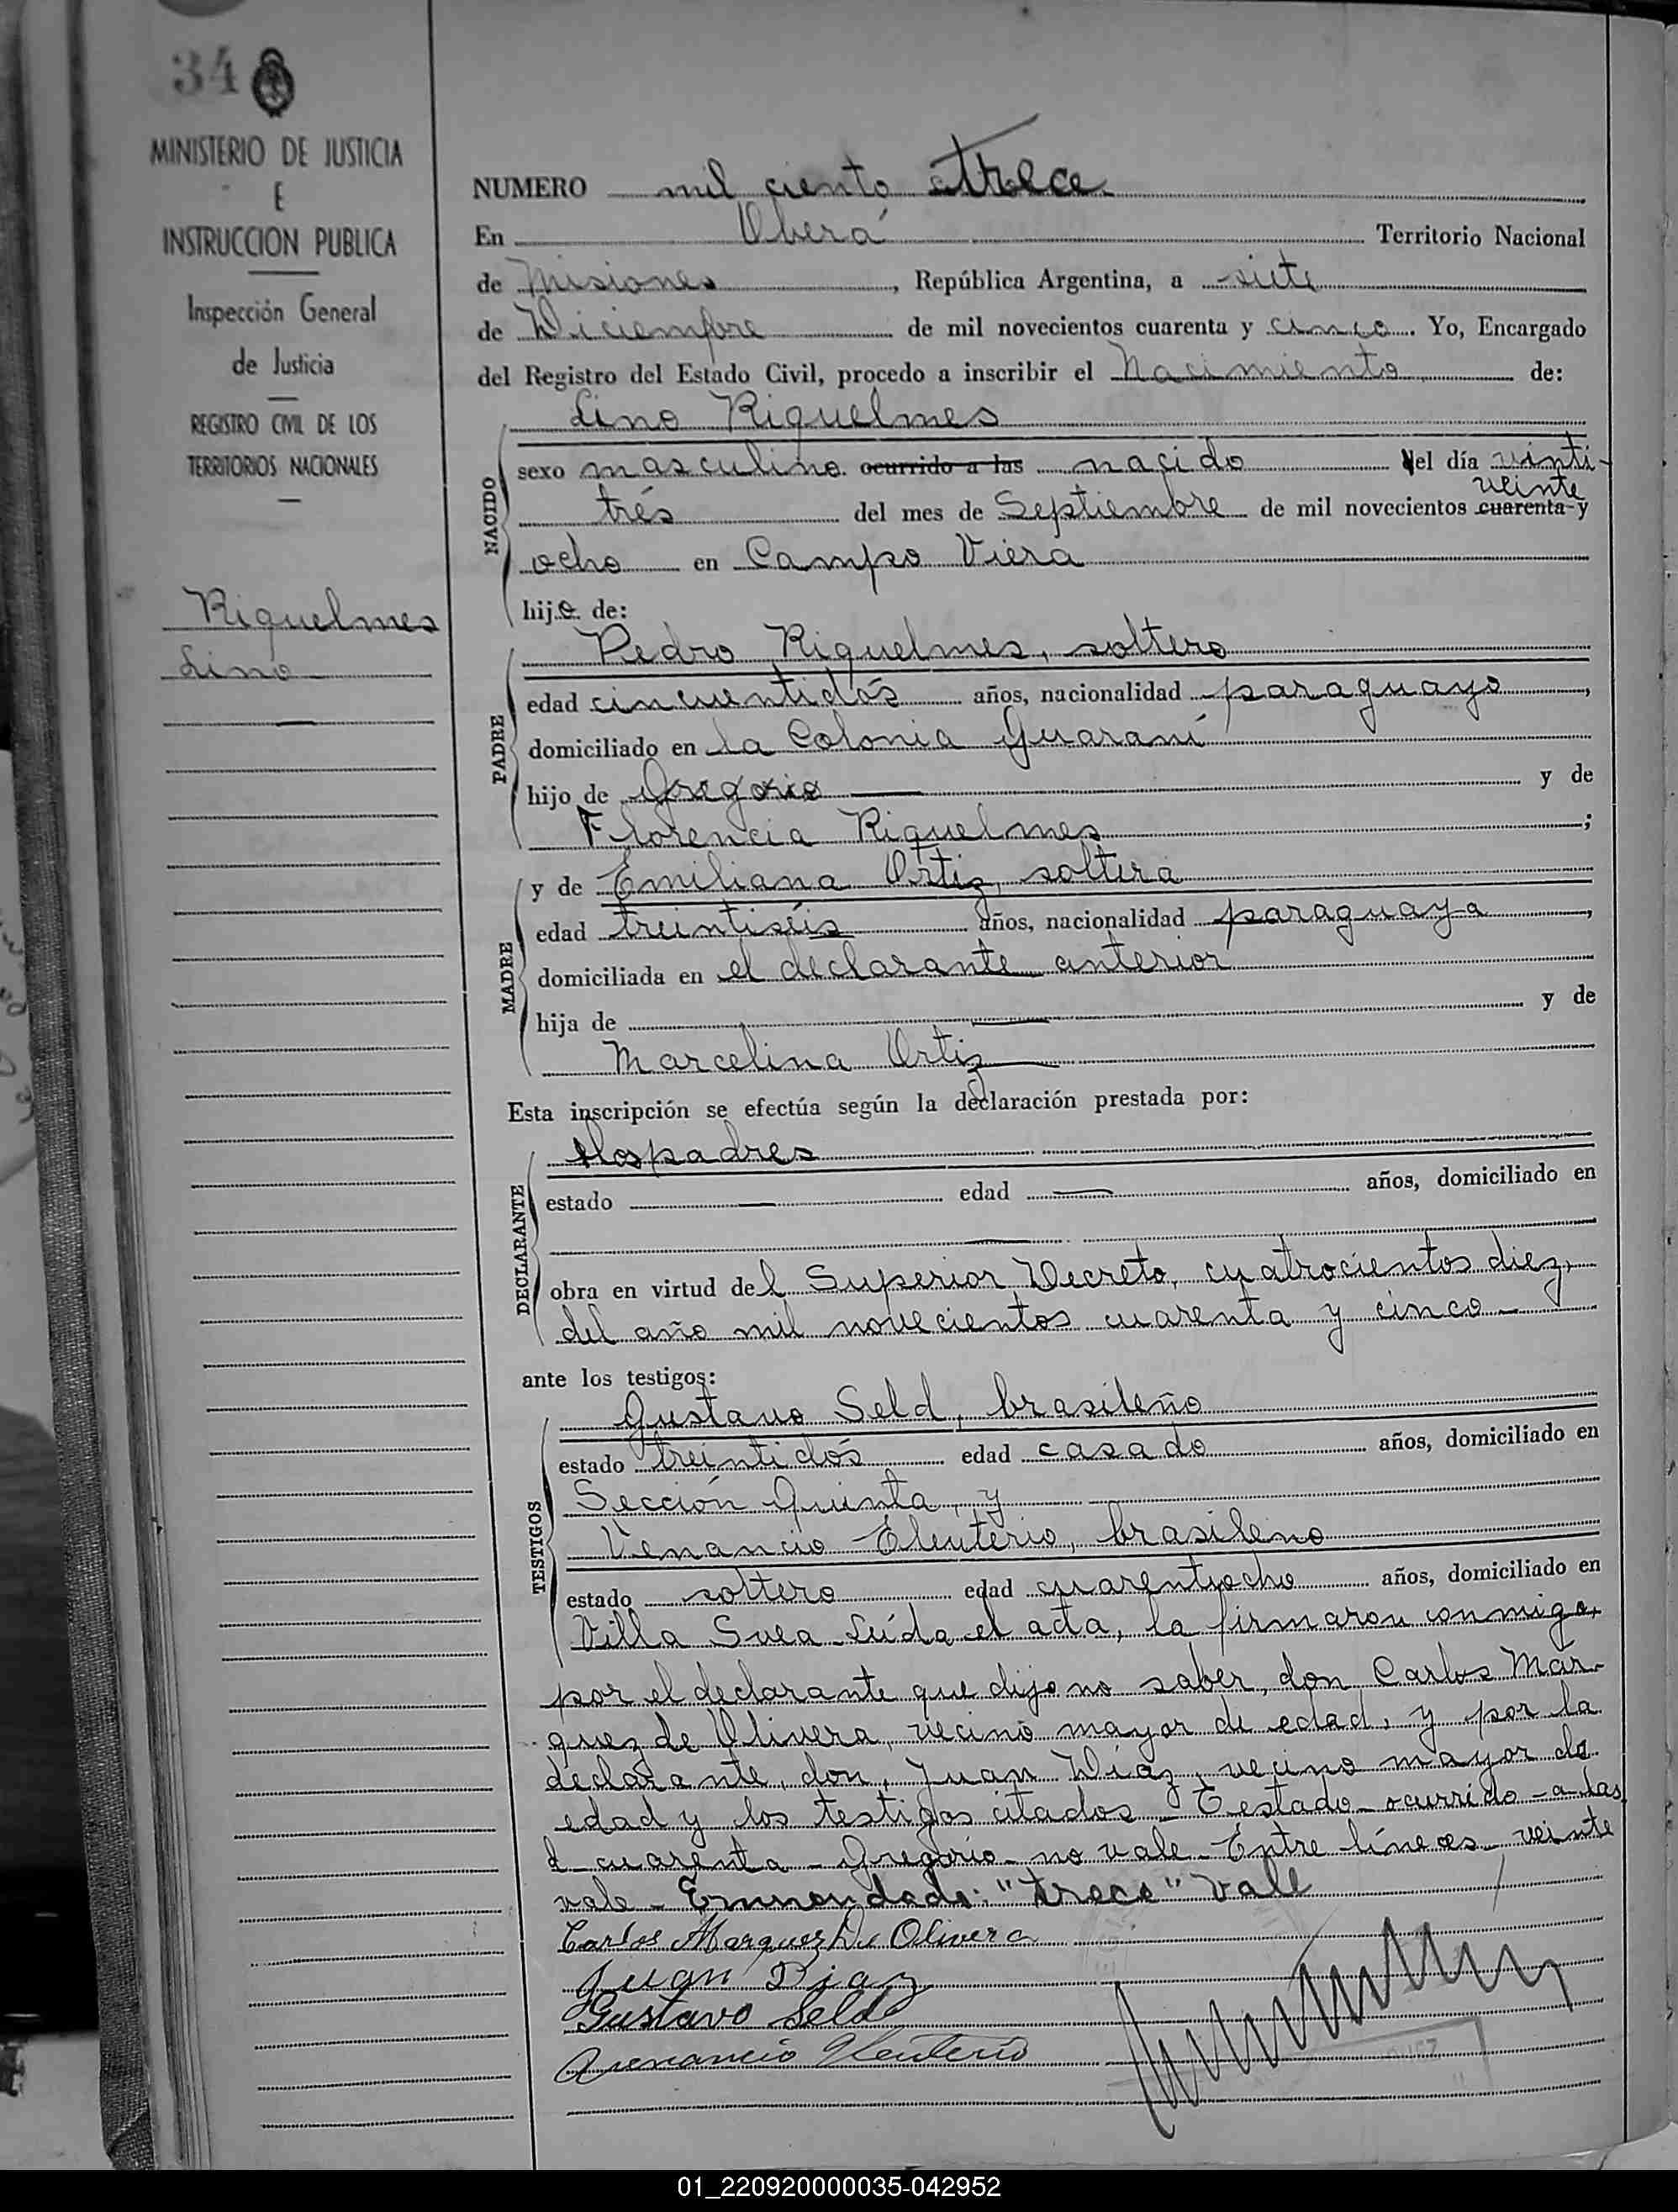 34
MINISTERIO DE JUSTICIA
E
INSTRUCCION PUBLICA
Inspección General
de Justicia
REGISTRO CIVIL DE LOS
TERRITORIOS NACIONALES
Riquelmes
Lino
NUMERO mil ciento trece
En Oberá Territorio Nacional
de Misiones, República Argentina, a siete
de Diciembre de mil novecientos cuarenta y cinco. Yo, Encargado
del Registro del Estado Civil, procedo a inscribir el Nacimiento de:
Lino Riquelmes
NACIDO
sexo masculino. ocurrido a las nacido el día vinti-
veinte
trés del mes de Septiembre de mil novecientos cuarenta y
ocho en Campo Viera
hijo de:
Pedro Riquelmes, soltero
PADRE
edad cincuentidós años, nacionalidad paraguayo,
domiciliado en la Colonia Guaraní
hijo de Gregorio y de
Florencia Riquelmes;
MADRE
y de Emiliana Ortiz, soltera
edad treintiséis años, nacionalidad paraguaya,
domiciliada en el declarante anterior
hija de y de
Marcelina Ortiz
Esta inscripción se efectúa según la declaración prestada por:
DECLARANTE
los padres
estado edad años, domiciliado en
obra en virtud del Superior Decreto, cuatrocientos diez,
del año mil novecientos cuarenta y cinco
ante los testigos:
TESTIGOS
Gustavo Seld, brasileño
estado treintidós edad casado años, domiciliado en
Sección Quinta, y
Venancio Eleuterio, brasileno
estado soltero edad cuarentiocho años, domiciliado en
Villa Svea Leída el acta, la firmaron conmigo,
por el declarante que dijo no saber, don Carlos Mar-
quez de Olivera, vecino mayor de edad, y por la
declarante, don, Juan Díaz, vecino mayor de
edad y los testigos citados - Testado - ocurrido - a las
d - cuarenta - Gregorio - no vale - Entre líneas - veinte
vale - Enmendado: "trece" Vale
Carlos Marquez De Olivera
Juan Diaz
Gustavo Seld
Venancio Eleuterio
01_220920000035-042952